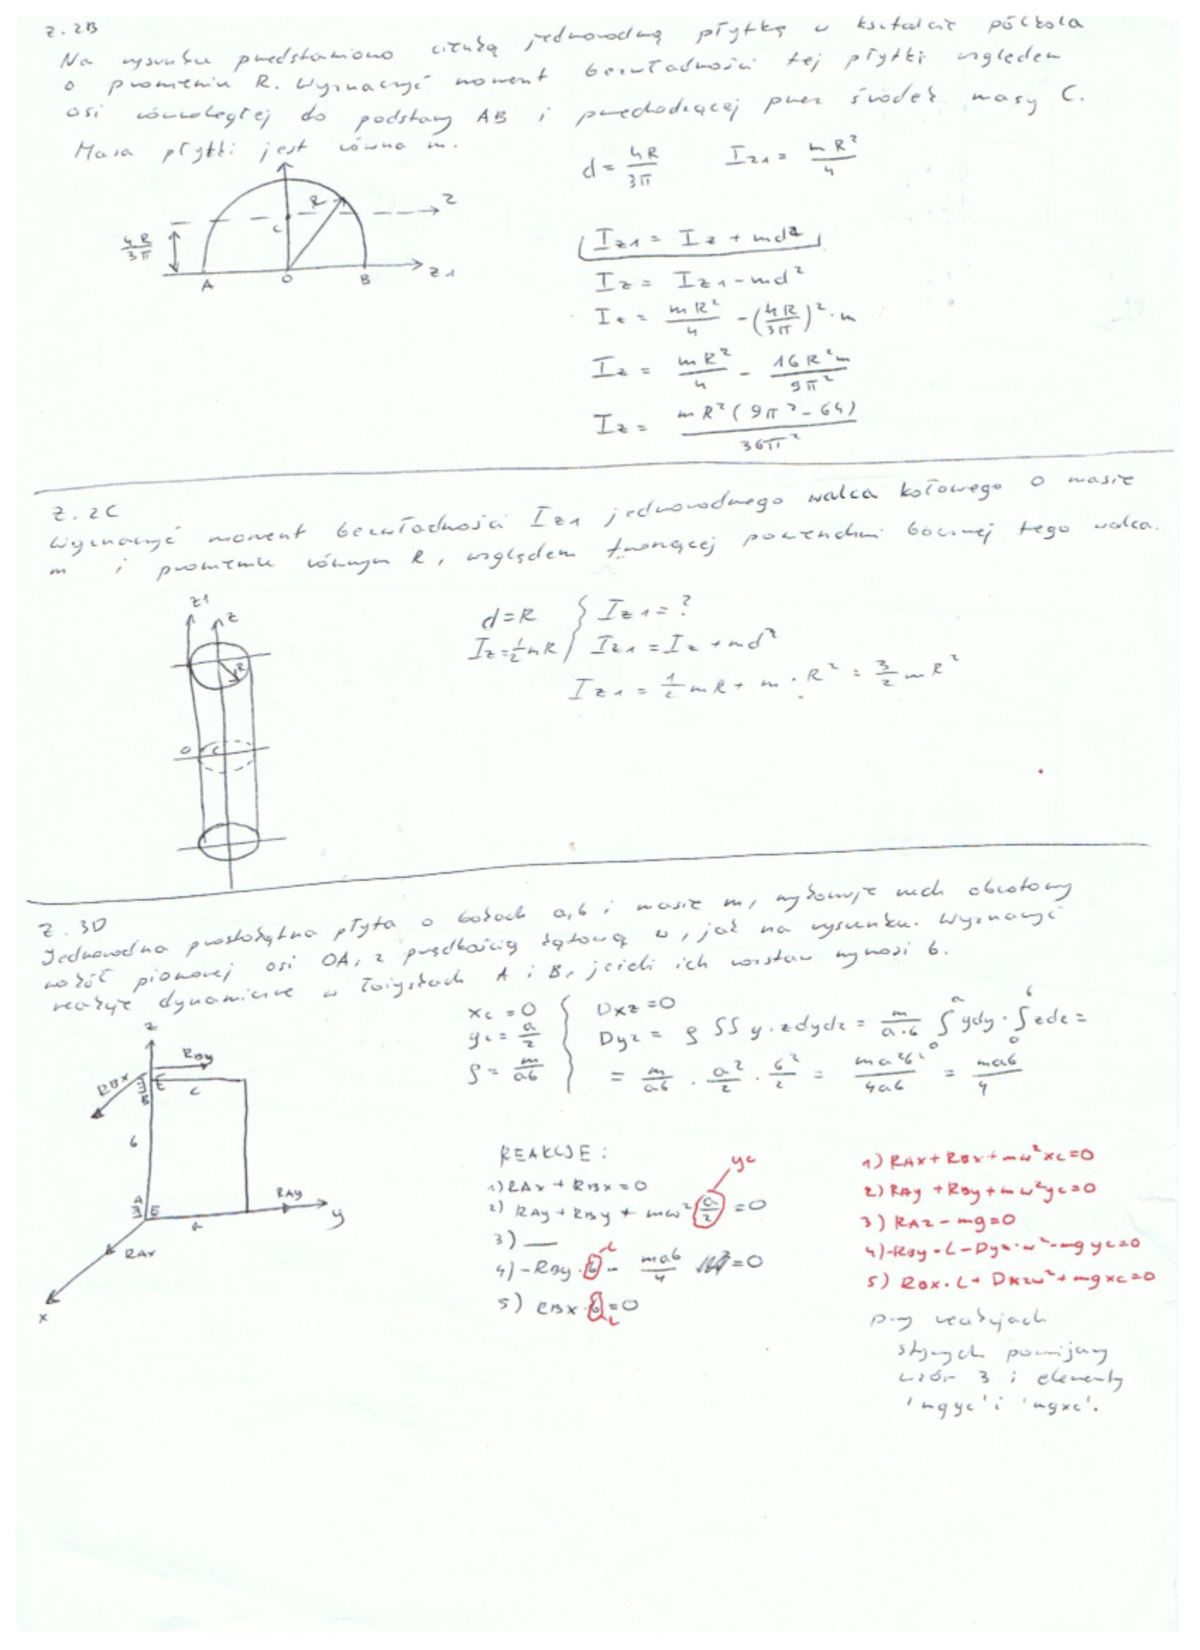 Z.2B
Na rysunku przedstawiono cienką jednorodną płytkę w kształcie półkola
o promieniu R. Wyznaczyć moment bezwładności tej płytki względem
osi równoległej do podstawy AB i przechodzącej przez środek masy C.
Masa płytki jest równa m.
d = 4R/3π   Iz1 = mR²/4
R
z
C
4R/3π
A O B z1
Iz1 = Iz + md²
Iz = Iz1 - md²
Iz = mR²/4 - (4R/3π)² · m
Iz = mR²/4 - 16R²m/9π²
Iz = mR²(9π² - 64)/36π²
Z.2C
Wyznaczyć moment bezwładności Iz1 jednorodnego walca kołowego o masie
m i promieniu równym R, względem tworzącej powierzchni bocznej tego walca.
z1 z
R
O C
d = R } Iz1 = ?
Iz = 1/2 mR } Iz1 = Iz + md²
Iz1 = 1/2 mR + m · R² = 3/2 mR²
Z.3D
Jednorodna prostokątna płyta o bokach a, b i masie m, wykonuje ruch obrotowy
wokół pionowej osi OA, z prędkością kątową ω, jak na rysunku. Wyznaczyć
reakcje dynamiczne w łożyskach A i B, jeżeli ich rozstaw wynosi b.
xc = 0 } Dxz = 0
yc = a/2 } Dyz = ρ ∫∫ y · z dy dz = m/a·b ∫₀ᵃ y dy · ∫₀ᵇ z dz =
ρ = m/ab } = m/ab · a²/2 · b²/2 = ma²b²/4ab = mab/4
z
RBy
RBx
B
b
A
a
RAy
y
RAx
x
REAKCJE:
1) RAx + RBx = 0
yc
2) RAy + RBy + mω² a/2 = 0
3) —
4) -RBy · b - mab/4 = 0
L
5) RBx · b = 0
L
1) RAx + RBx + mω²xc = 0
2) RAy + RBy + mω²yc = 0
3) RAz - mg = 0
4) -RBy · L - Dyz · ω² - mg yc = 0
5) RBx · L + Dxzω² + mgxc = 0
przy reakcjach
pomijamy
wzór 3 i elementy
'mgyc' i 'mgxc'.